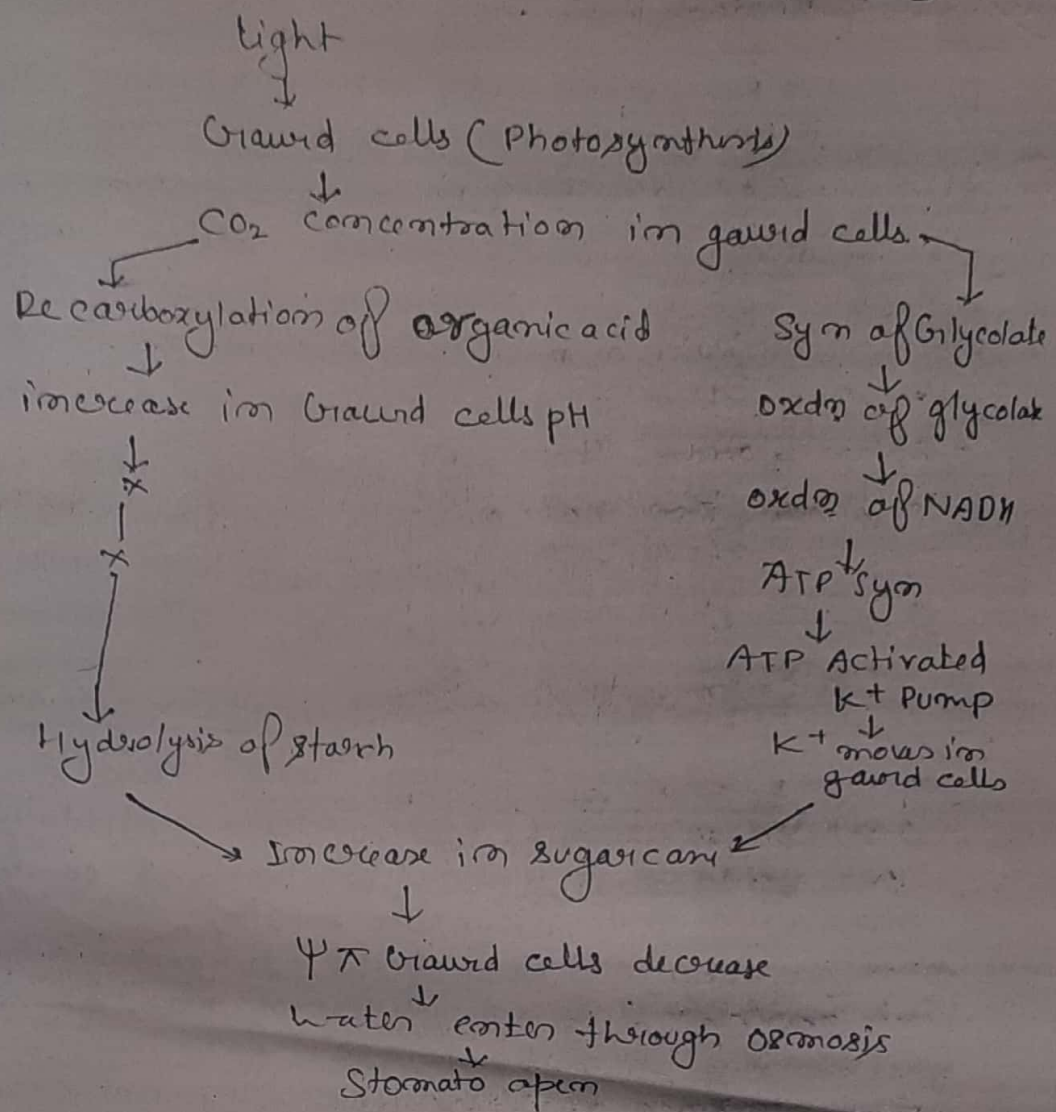 Light
Gaurd cells (Photosynthesis)
CO₂ concentration in gaurd cells
Decarboxylation of organic acid
increase in Gaurd cells pH
x
x
Hydrolysis of starch
Syn of Glycolate
oxdn of glycolate
oxdn of NADH
ATP Syn
ATP Activated
K+ Pump
K+ moves in
gaurd cells
Increase in sugar
Ψπ Gaurd cells decrease
water enter through osmosis
Stomato open